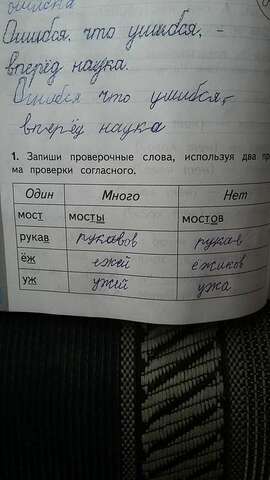 Ошибся, что ушибся, -
вперёд наука.
Ошибся что ушибся,
вперёд наука
1. Запиши проверочные слова, используя два при
ма проверки согласного.
Один Много Нет
мост мосты мостов
рукав рукавов рукав
ёж ежей ежиков
уж ужей ужа